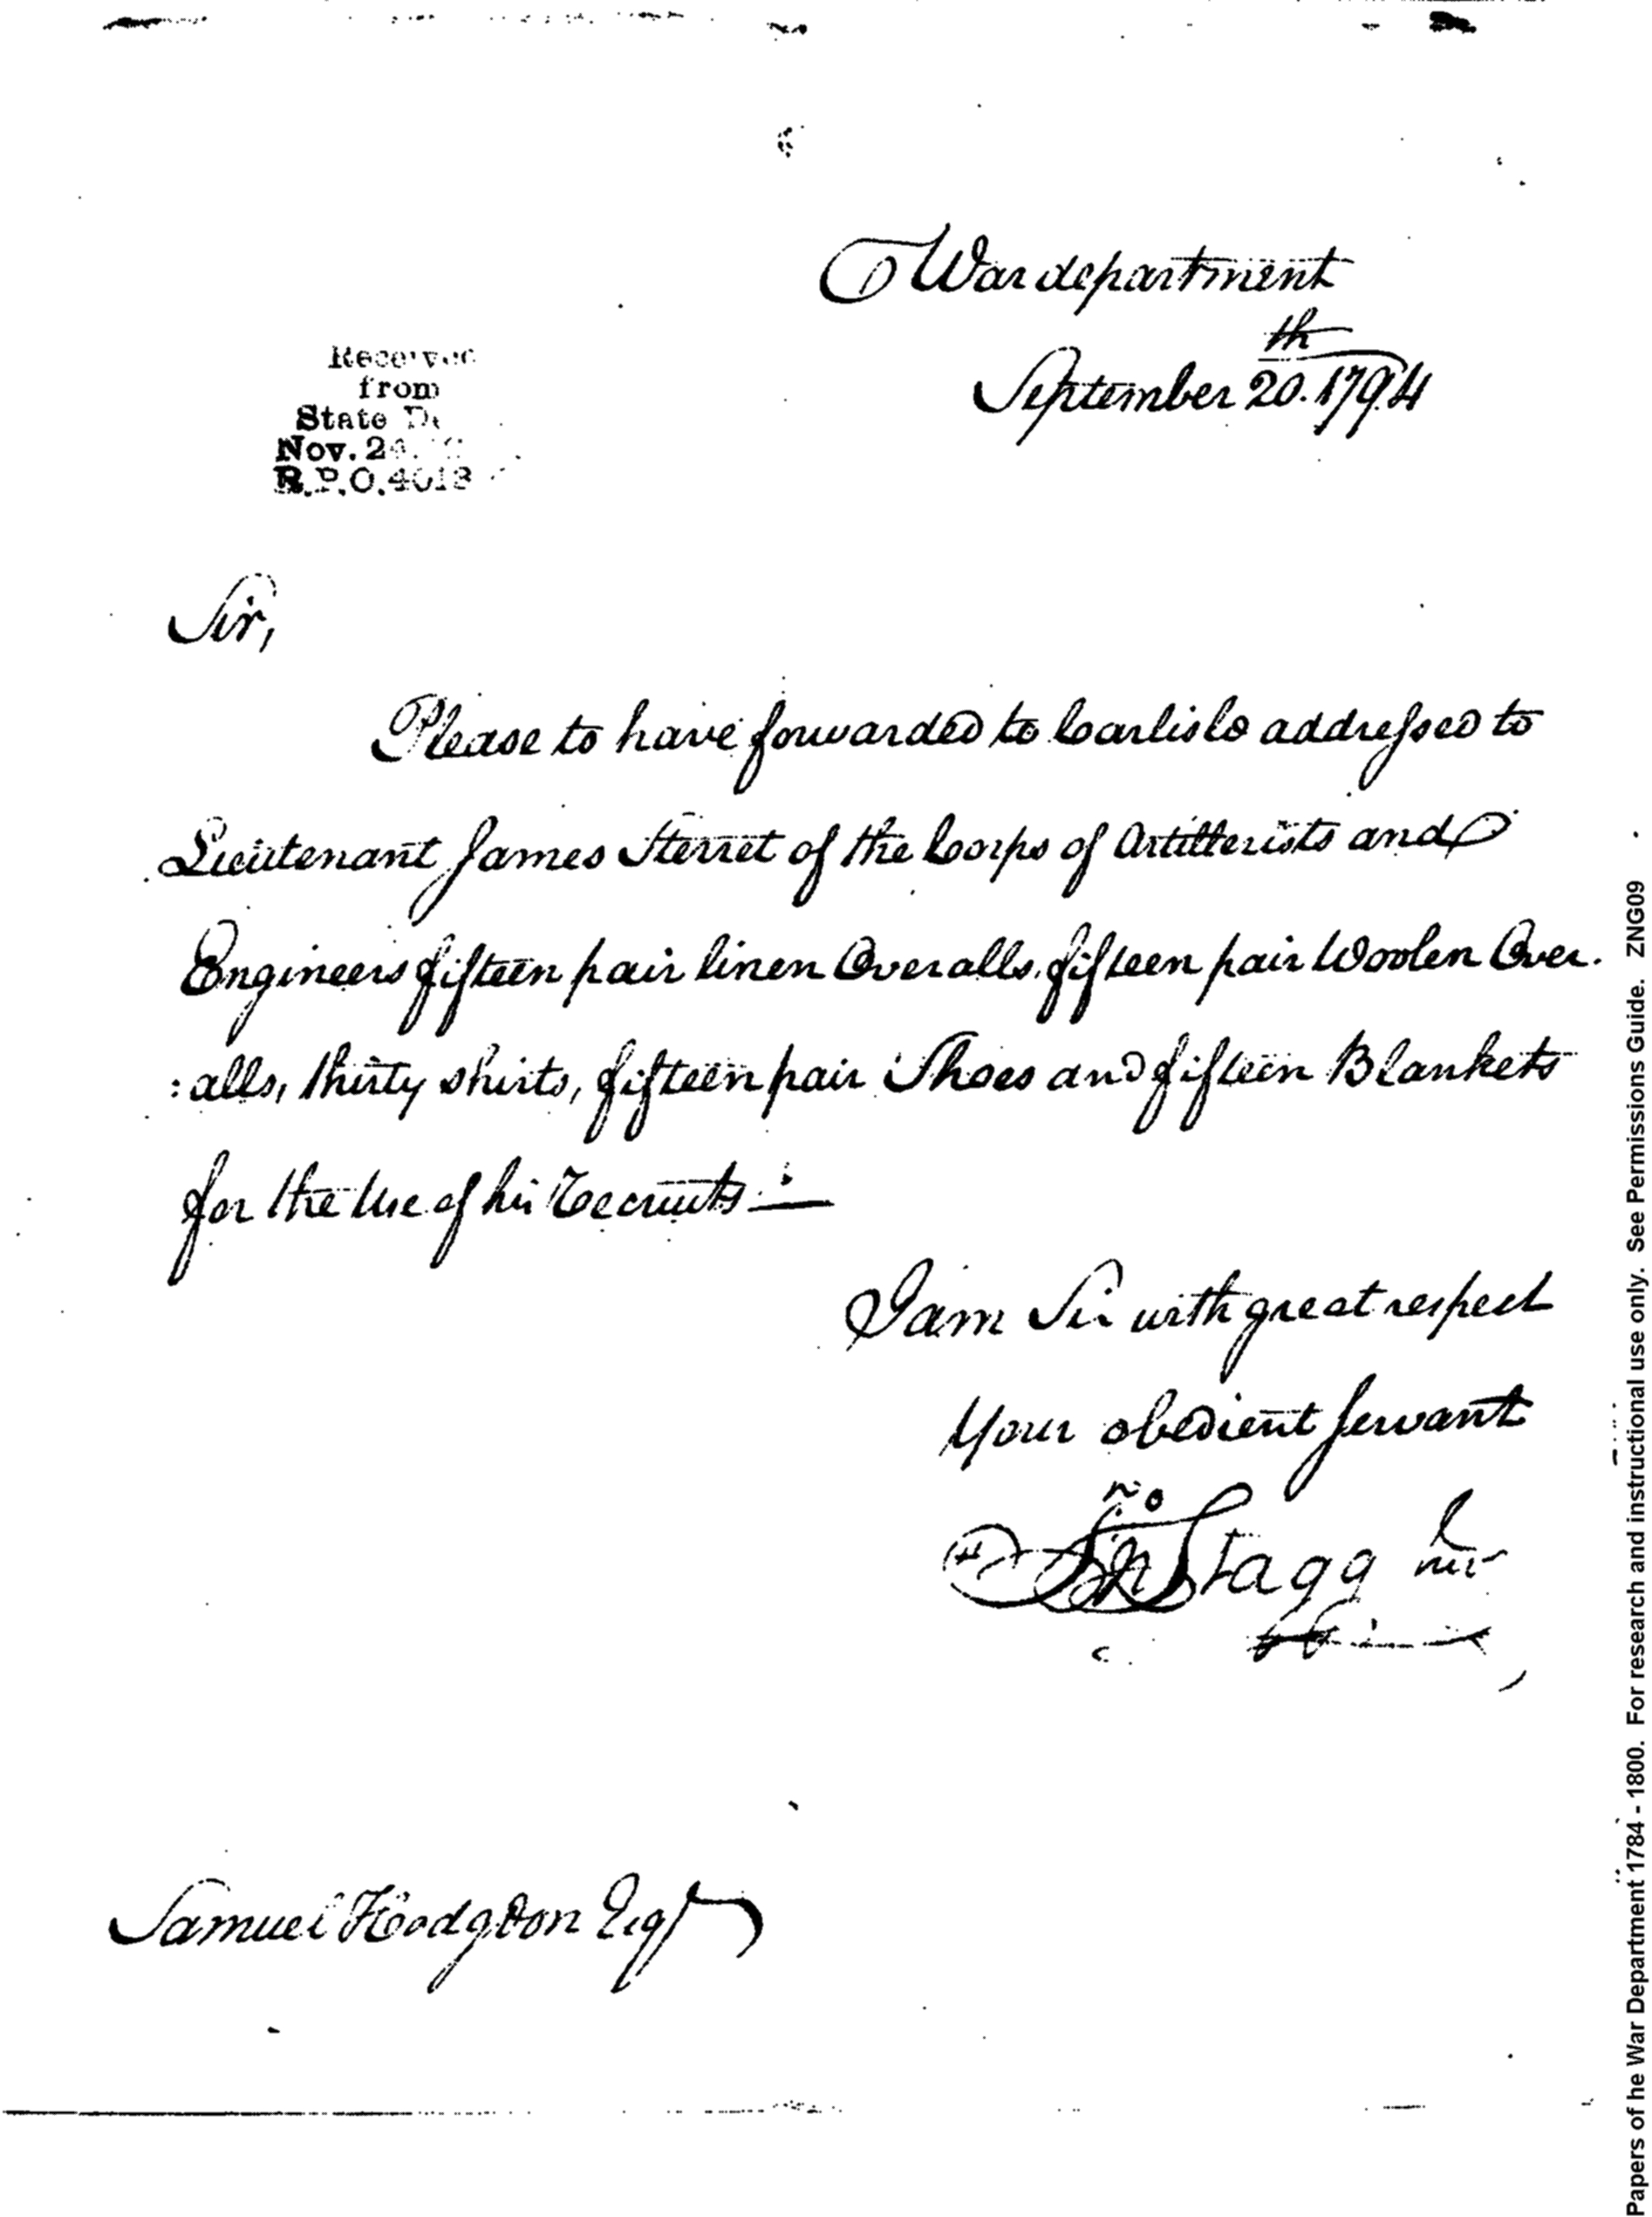 War department
September 20.th 1794
Received
from
State De
Nov. 2
R.P.O. 4018
Sir,
Please to have forwarded to Carlisle addressed to
Lieutenant James Sterret of the Corps of Artillerists and
Engineers fifteen pair linen Overalls, fifteen pair Woolen Over.
:alls, thirty shirts, fifteen pair Shoes and fifteen Blankets
for the Use of his Recruits.—
I am Sir with great respect
Your obedient Servant
Jno Stagg Junr
Samuel Hodgdon Esqr
Papers of he War Department 1784 - 1800. For research and instructional use only. See Permissions Guide. ZNG09